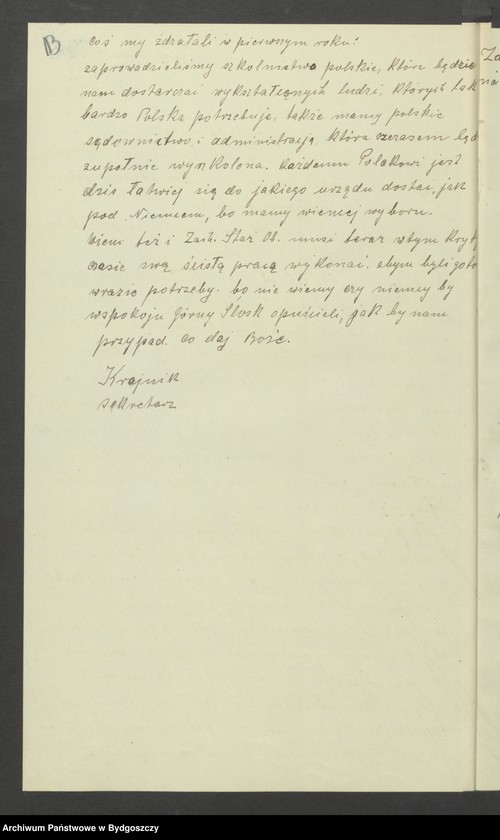 B
coś my zdzałali w pierwszym roku!
zaprowadzieliśmy szkolnictwo polskie, które będzie
nam dostarczać wykształconych ludzi, których tak
bardzo Polska potrzebuje, także mamy polskie
sądownictwo, i administracją, która czerasem będ
zupołnie wyszkolona. Każdemu Polakowi jest
dzis łatwiej się do jakiego urzędu dostać, jak
pod. Niemcem, bo mamy wiencej wyboru.
też i Zach. Staż Ob. musi teraz wtym kryty
czasie swą ścisłą pracą wykonać. abym byli goto
wrazie potrzeby. bo nie wiemy czy niemcy by
wspokoju Górny Śląsk opuścieli, jak by nam
przypad. co daj Boże.
Krajnik
sekretarz
Za
Archiwum Państwowe w Bydgoszczy